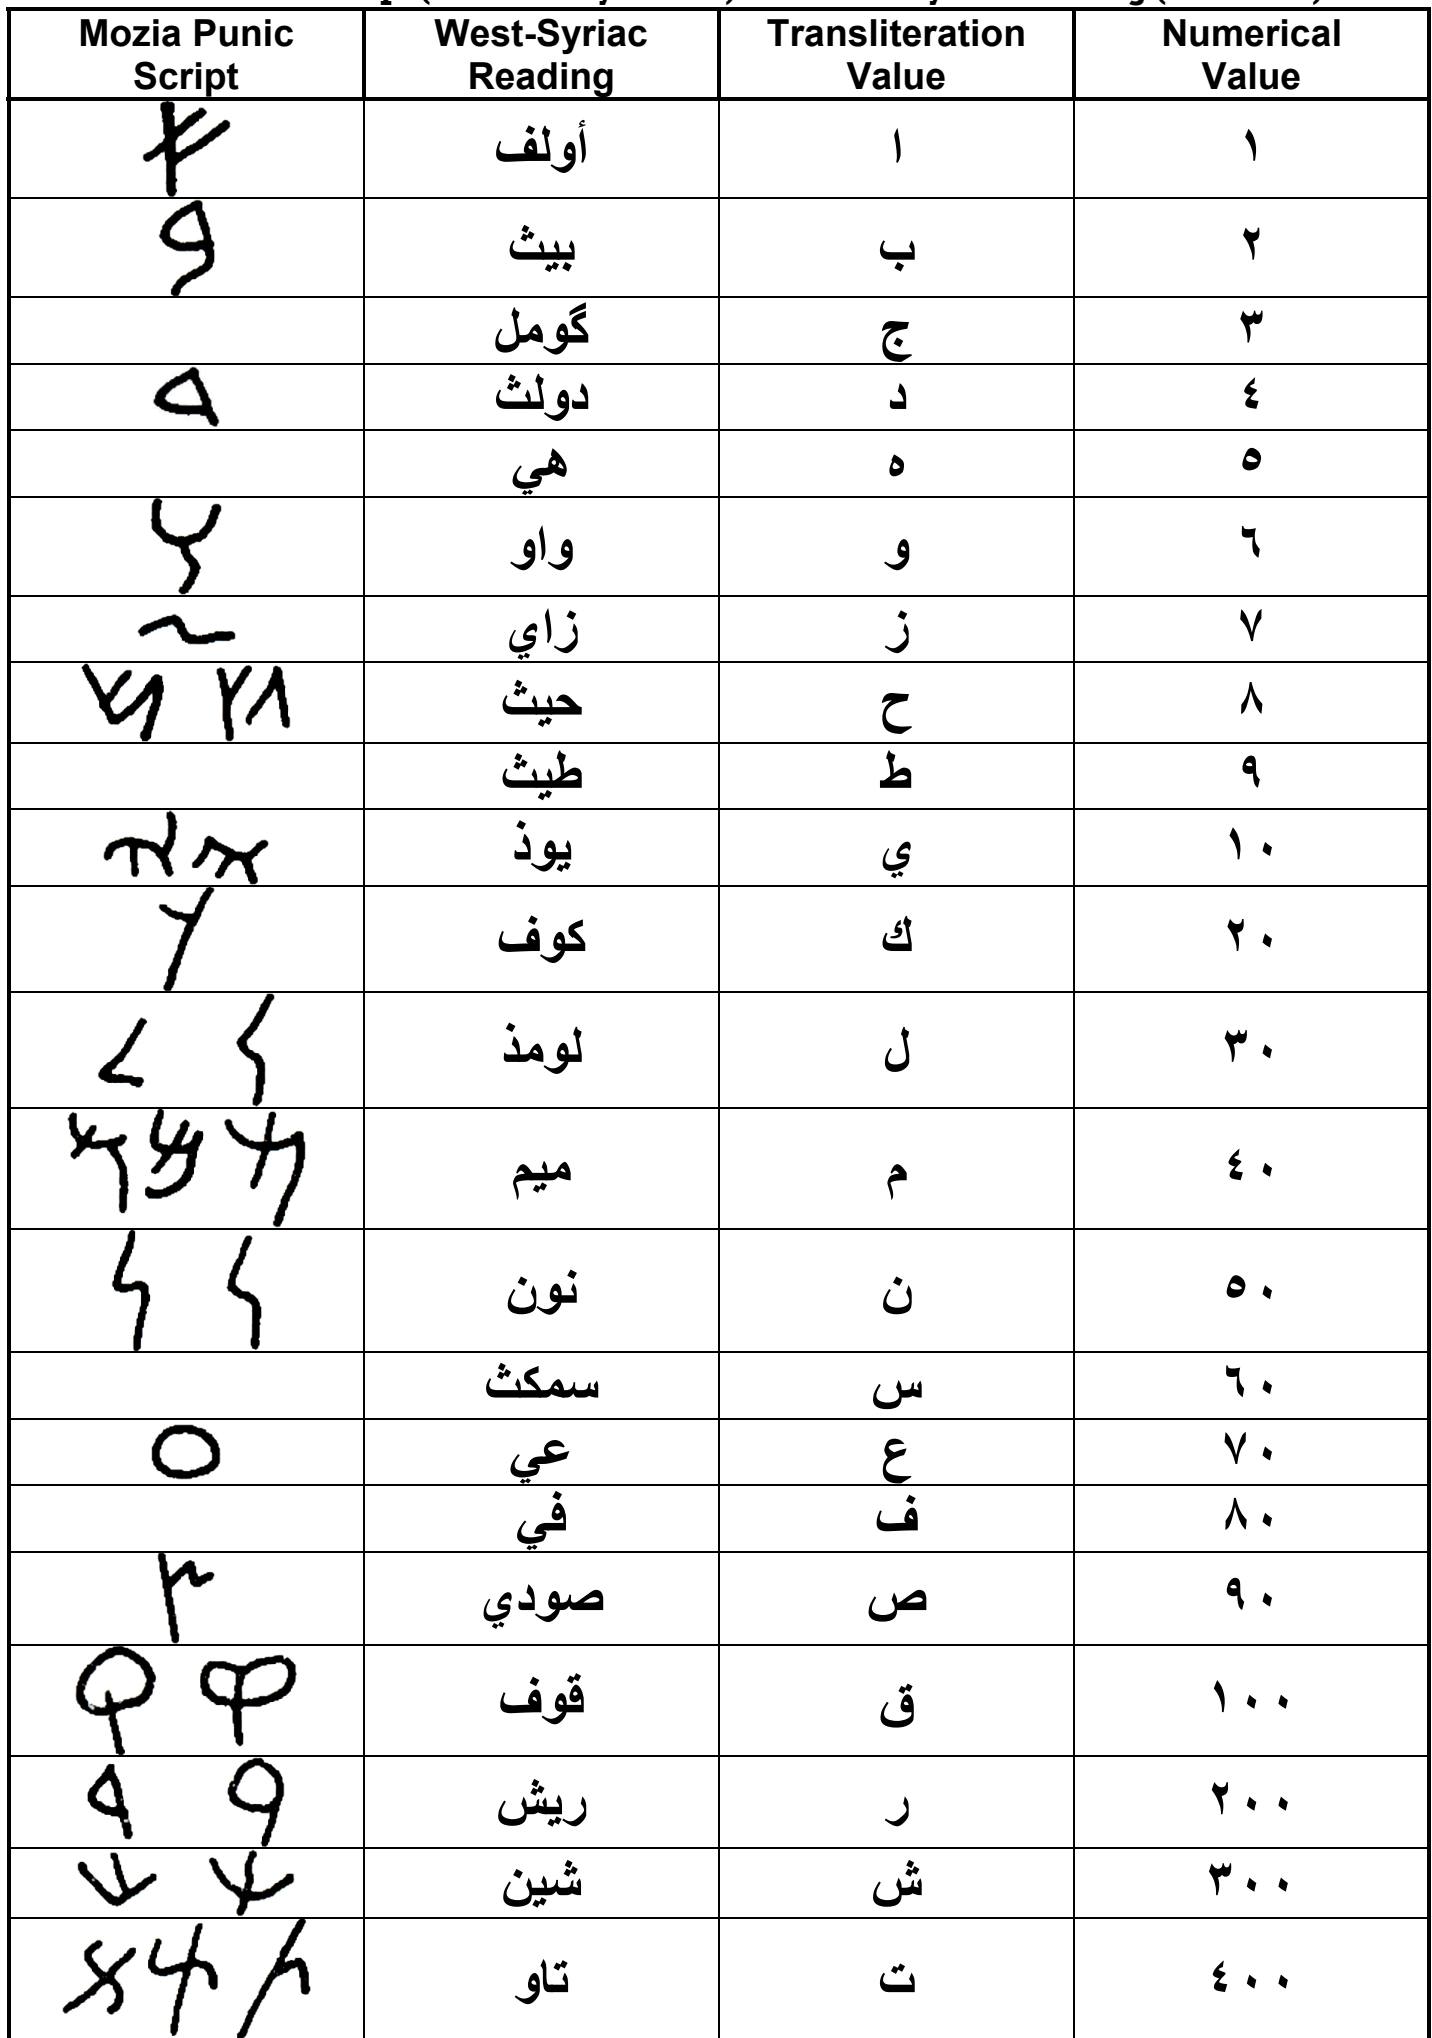 Mozia Punic Script | West-Syriac Reading | Transliteration Value | Numerical Value
أولف | ا | ١
بيث | ب | ٢
گومل | ج | ٣
دولث | د | ٤
هي | ه | ٥
واو | و | ٦
زاي | ز | ٧
حيث | ح | ٨
طيث | ط | ٩
يوذ | ي | ١٠
كوف | ك | ٢٠
لومذ | ل | ٣٠
ميم | م | ٤٠
نون | ن | ٥٠
سمكث | س | ٦٠
عي | ع | ٧٠
في | ف | ٨٠
صودي | ص | ٩٠
قوف | ق | ١٠٠
ريش | ر | ٢٠٠
شين | ش | ٣٠٠
تاو | ت | ٤٠٠